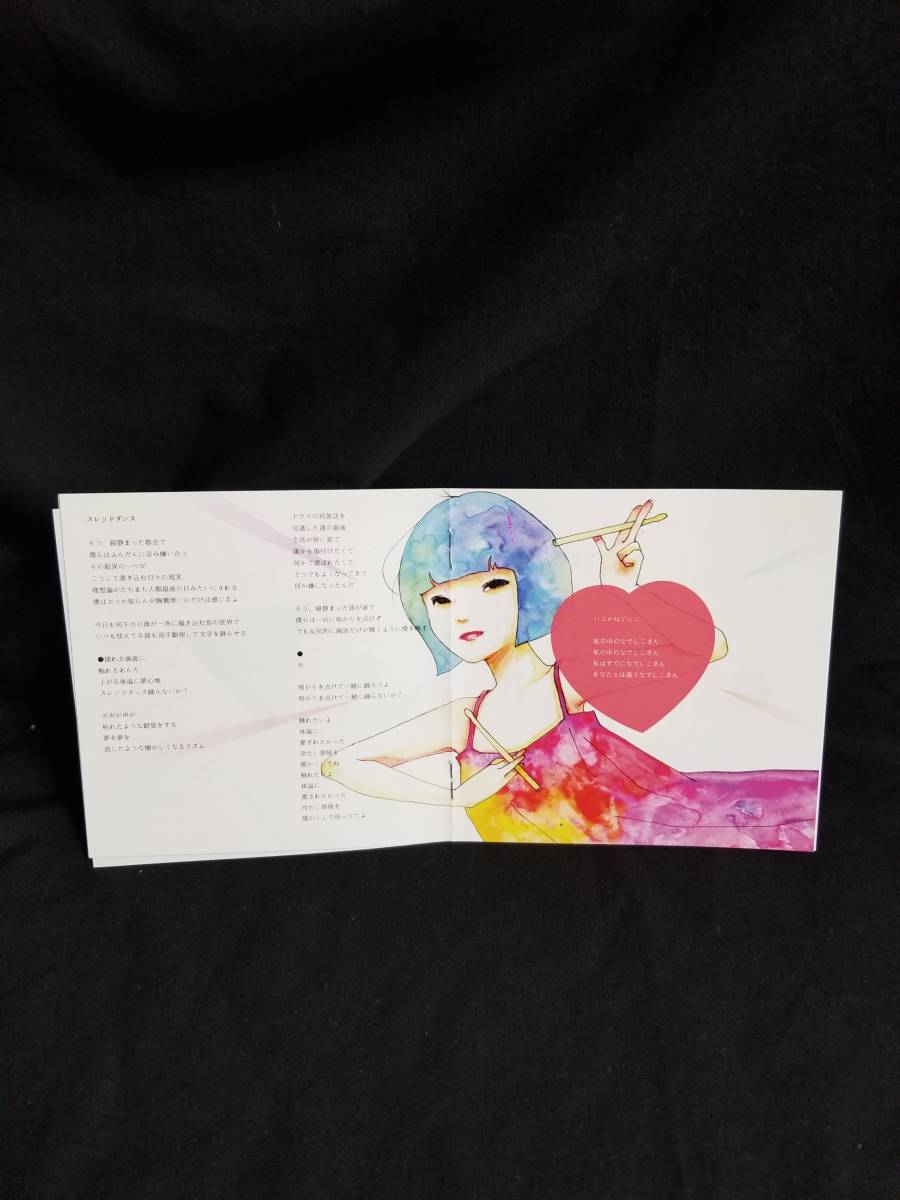 スレッドダンス
そう、寝静まった都会で
僕らはふんだんに忌み嫌い合う
その結果の一つが
こうして書き込む日々の現実
理想論がたちまち人類最後の日みたいにされる
僕はどうか知らんが胸糞悪いのだけは感じるよ
今日も何千万の誰が一斉に覗き込む別の世界で
いつも怯えてる彼も両手駆使して文字を踊らせる
●揺れる画面に
触れるあんた
上がる体温に夢心地
スレッドダンス踊らないか？
歪声が声が
枯れたような錯覚をする
夢を夢を
流したような懐かしくなるリズム
ドラマの再放送を
見逃した週の最後
生活が妙に変で
誰かを傷付けたくて
何かで選ばれたくて
どうでもよくなってきて
何か嫌になったんだ
そう、寝静まった我が家で
僕らは一向に明かりを点けず
でも反抗的に画面だけが輝くように僕を映す
●
※
明かりを点けて一緒に踊ろうよ
明かりを点けて一緒に踊らないか？
触れたいよ
体温に
愛されたかった
冷たい部屋を
暖かくしてね
触れたいよ
体温に
愛されたかった
冷たい部屋を
暖かくして待っててよ
ハニカねでしこ
私の中のなでしこさん
私の中のなでしこさん
私はすでになでしこさん
あなたとは違うなでしこさん